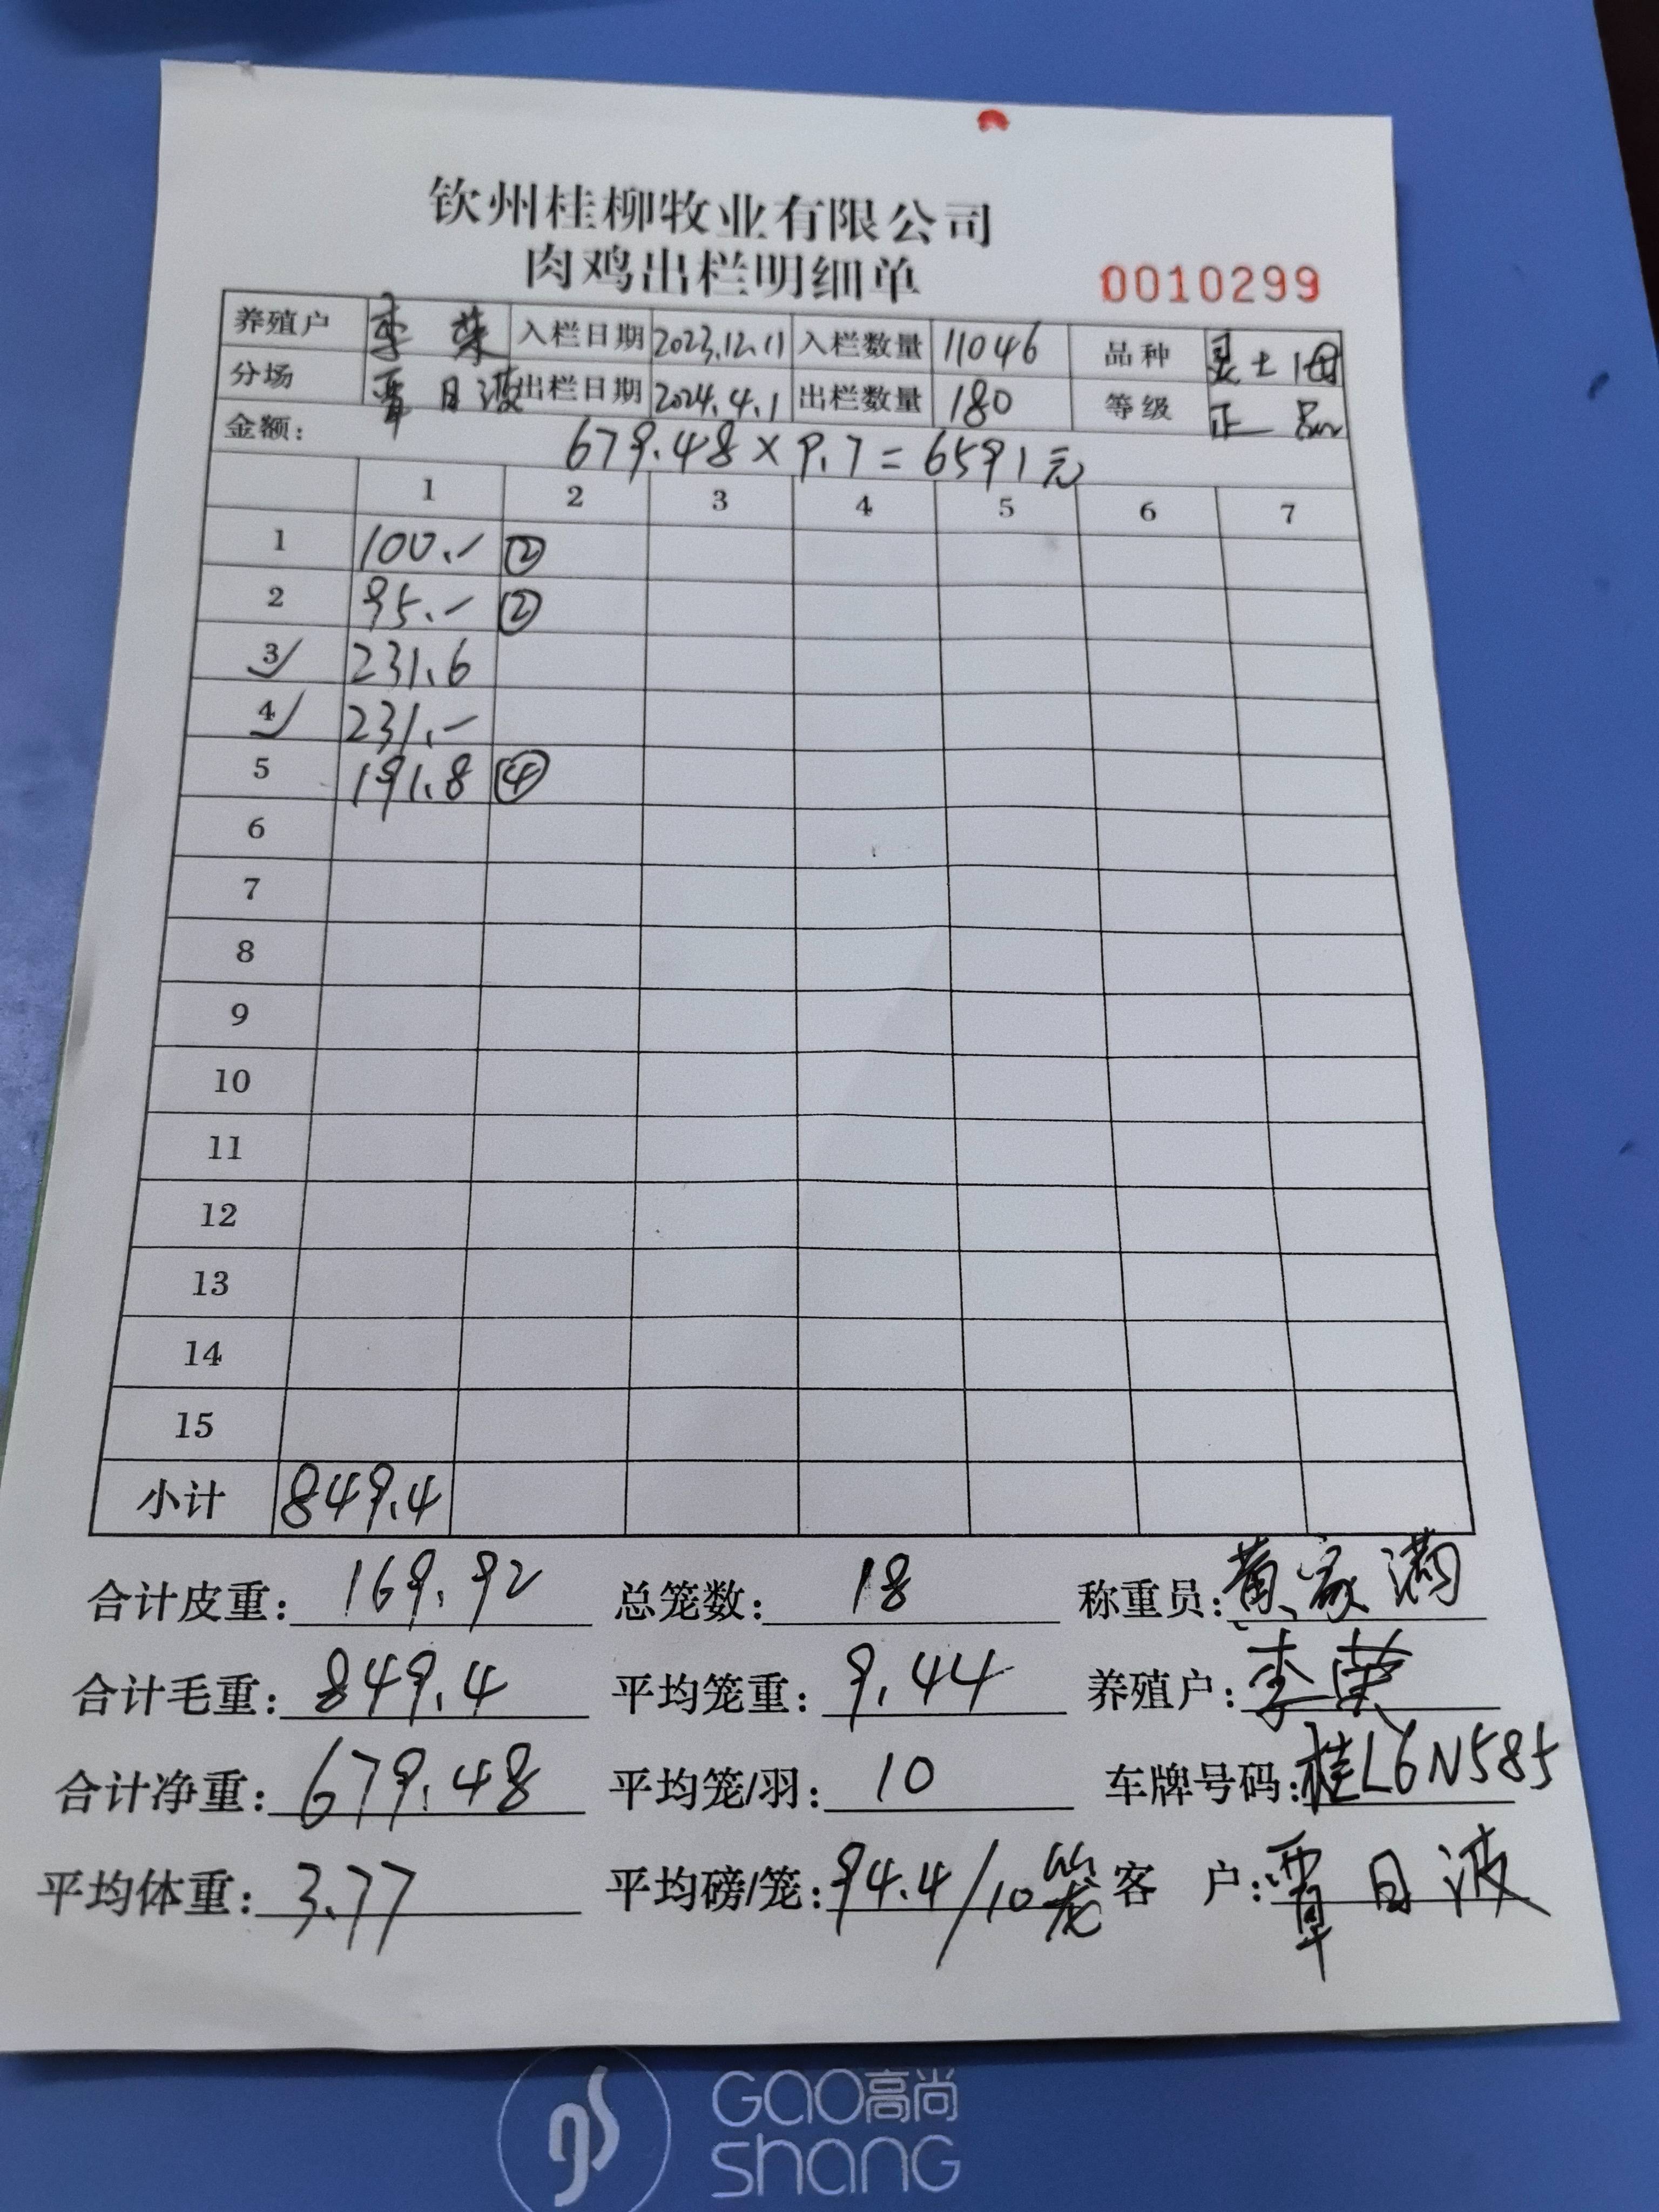 钦州桂柳牧业有限公司
肉鸡出栏明细单 0010299
养殖户 李荣 入栏日期 2023.12.11 入栏数量 11046 品种 灵土1母
分场 覃日波 出栏日期 2024.4.1 出栏数量 180 等级 正品
金额: 679.48×9.7=6591元
1 2 3 4 5 6 7
1 100.- ②
2 95.- ②
3 231.6
4 231.-
5 191.8 ④
6
7
8
9
10
11
12
13
14
15
小计 849.4
合计皮重: 169.92 总笼数: 18 称重员: 黄家满
合计毛重: 849.4 平均笼重: 9.44 养殖户: 李荣
合计净重: 679.48 平均笼/羽: 10 车牌号码: 桂L6N585
平均体重: 3.77 平均磅/笼: 94.4/10笼 客户: 覃日波
GAO高尚
SHANG